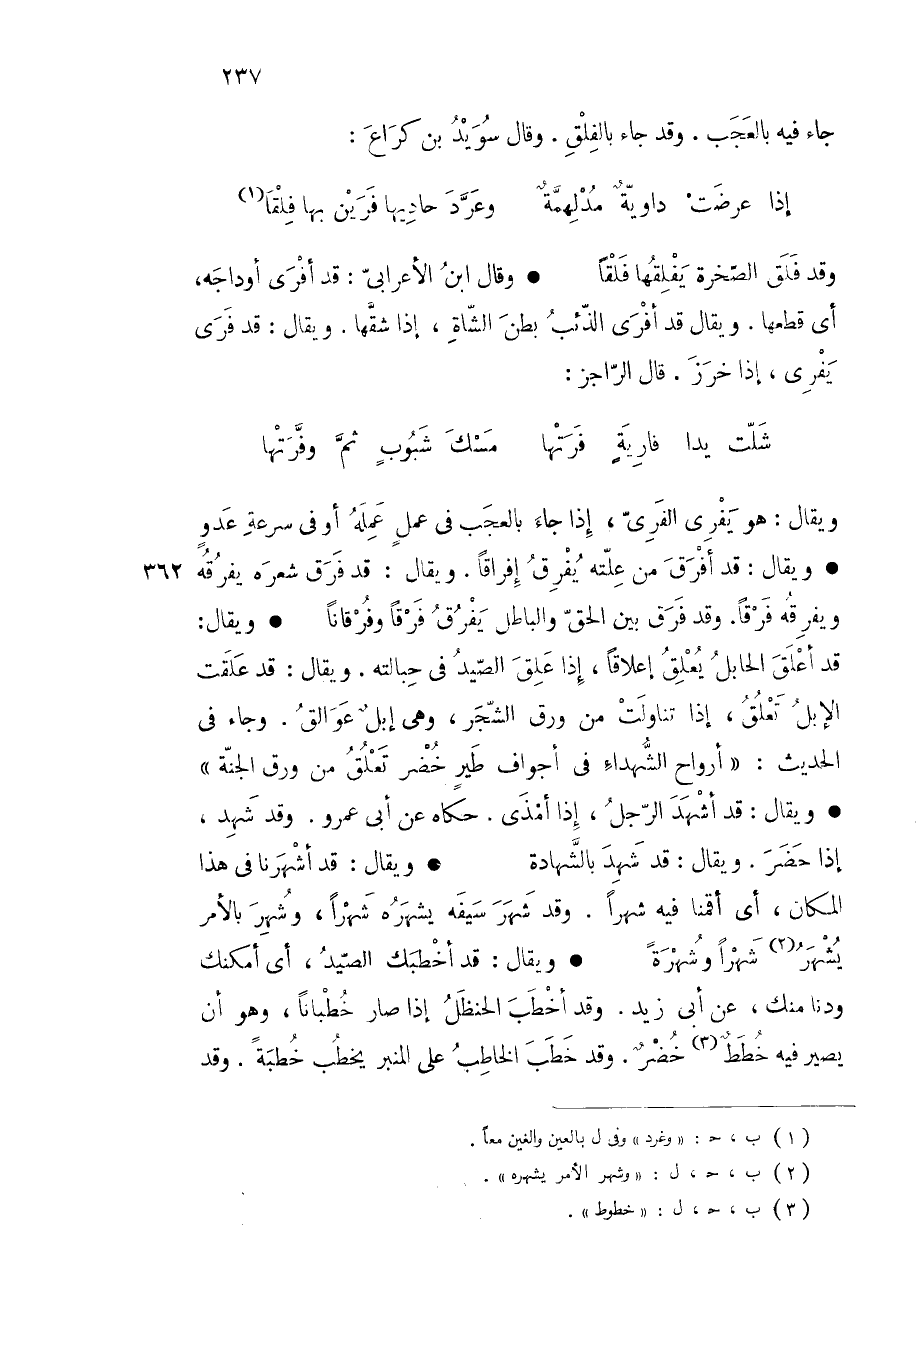 ٢٣٧
جاء فيه بالعَجَب . وقد جاء بالفِلْقِ . وقال سُوَيْدُ بن كرَاعَ :
إذا عرضَتْ داويّةٌ مُدْلَهِمَّةٌ وعَرَّدَ حادِيها فَرَيْن بها فِلْقَا(١)
وقد فَلَق الصّخرة يَفْلِقُها فَلْقاً ● وقال ابنُ الأعرابىّ : قد أفْرَى أوداجَه،
أى قطعها . ويقال قد أفْرَى الذّئبُ بطنَ الشّاةِ ، إذا شقَّها . ويقال : قد فَرَى
يَفْرِى ، إذا خرَزَ . قال الرّاجز :
شَلّت يدا فارِيَةٍ فَرَتْها مَسْكَ شَبُوبٍ ثمَّ وفَّرَتْها
ويقال : هو يَفْرِى الفَرِىّ ، إذا جاءَ بالعجَب فى عملٍ عَمِلَهُ أو فى سرعةِ عَدوٍ
● ويقال : قد أفْرَقَ من عِلّته يُفْرِقُ إفراقاً . ويقال : قد فَرَق شعرَه يفرُقُه ٣٦٢
ويفرِقُه فَرْقاً. وقد فَرَق بين الحقّ والباطل يَفْرُقُ فَرْقاً وفُرْقاناً ● ويقال:
قد أعْلَقَ الحابلُ يُعْلِقُ إعلاقاً ، إذا عَلِقَ الصّيدُ فى حِبالته . ويقال : قد عَلَقت
الإبلُ تَعْلُقُ ، إذا تناولَتْ من ورق الشّجَر ، وهى إبلٌ عَوَالقُ . وجاء فى
الحديث : « أرواح الشُّهداءِ فى أجواف طَيرٍ خُضْر تَعْلُقُ من ورق الجنّة »
● ويقال : قد أشْهَدَ الرّجلُ ، إذا أمْذَى . حكاه عن أبى عمرو . وقد شَهِد ،
إذا حَضَرَ . ويقال : قد شَهِدَ بالشَّهادة ● ويقال : قد أشْهَرنا فى هذا
المكان ، أى أقمنا فيه شهراً . وقد شَهَرَ سَيفَه يشهَرُه شَهْراً ، وشُهِرَ بالأمر
يُشْهَرُ(٢) شَهْراً وشُهْرَةً ● ويقال : قد أخْطبَك الصّيدُ ، أى أمكنك
ودنا منك ، عن أبى زيد . وقد أخْطَبَ الحنظَلُ إذا صار خُطْباناً ، وهو أن
يصير فيه خُطَطٌ(٣) خُضْرٌ . وقد خَطَبَ الخاطبُ على المنبر يخطُب خُطبَةً . وقد
( ١ ) ب ، حـ : « وغرد » وفى ل بالعين والغين معاً .
( ٢ ) ب ، حـ ، ل : « وشهر الأمر يشهره » .
( ٣ ) ب ، حـ ، ل : « خطوط » .